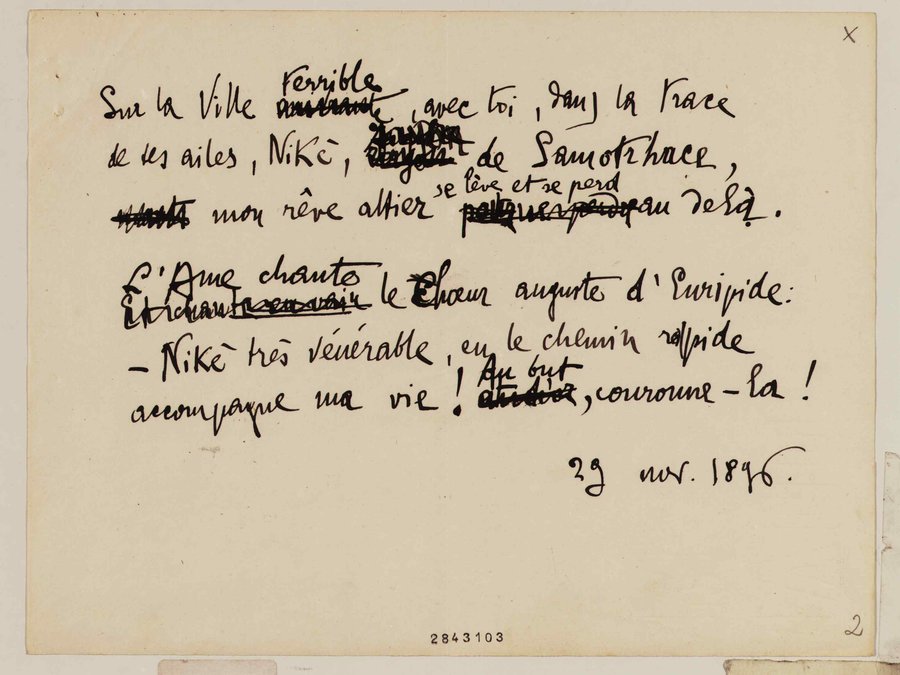 x
Sur la Ville Terrible, avec toi, dans la trace
de tes ailes, Nikè, de Samothrace,
mon rêve altier se lève et se perd au delà.
L'Ame chante le Chœur auguste d'Euripide:
– Nikè très vénérable, en le chemin rapide
accompagne ma vie! Au but, couronne-la!
29 nov. 1896.
2843103
2